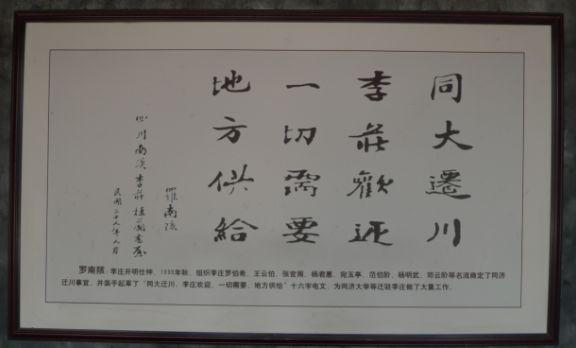 同大遷川
李莊歡迎
一切需要
地方供給
羅南陔
四川南溪李莊
民國二十八年八月
罗南陔：李庄开明仕绅，1939年秋，组织李庄罗伯希、王云伯、张官周、杨君惠、宛玉亭、范伯阶、杨明武、邓云阶等名流商定了同济
迁川事宜，并亲手起草了“同大迁川，李庄欢迎，一切需要，地方供给”十六字电文，为同济大学等迁驻李庄做了大量工作。